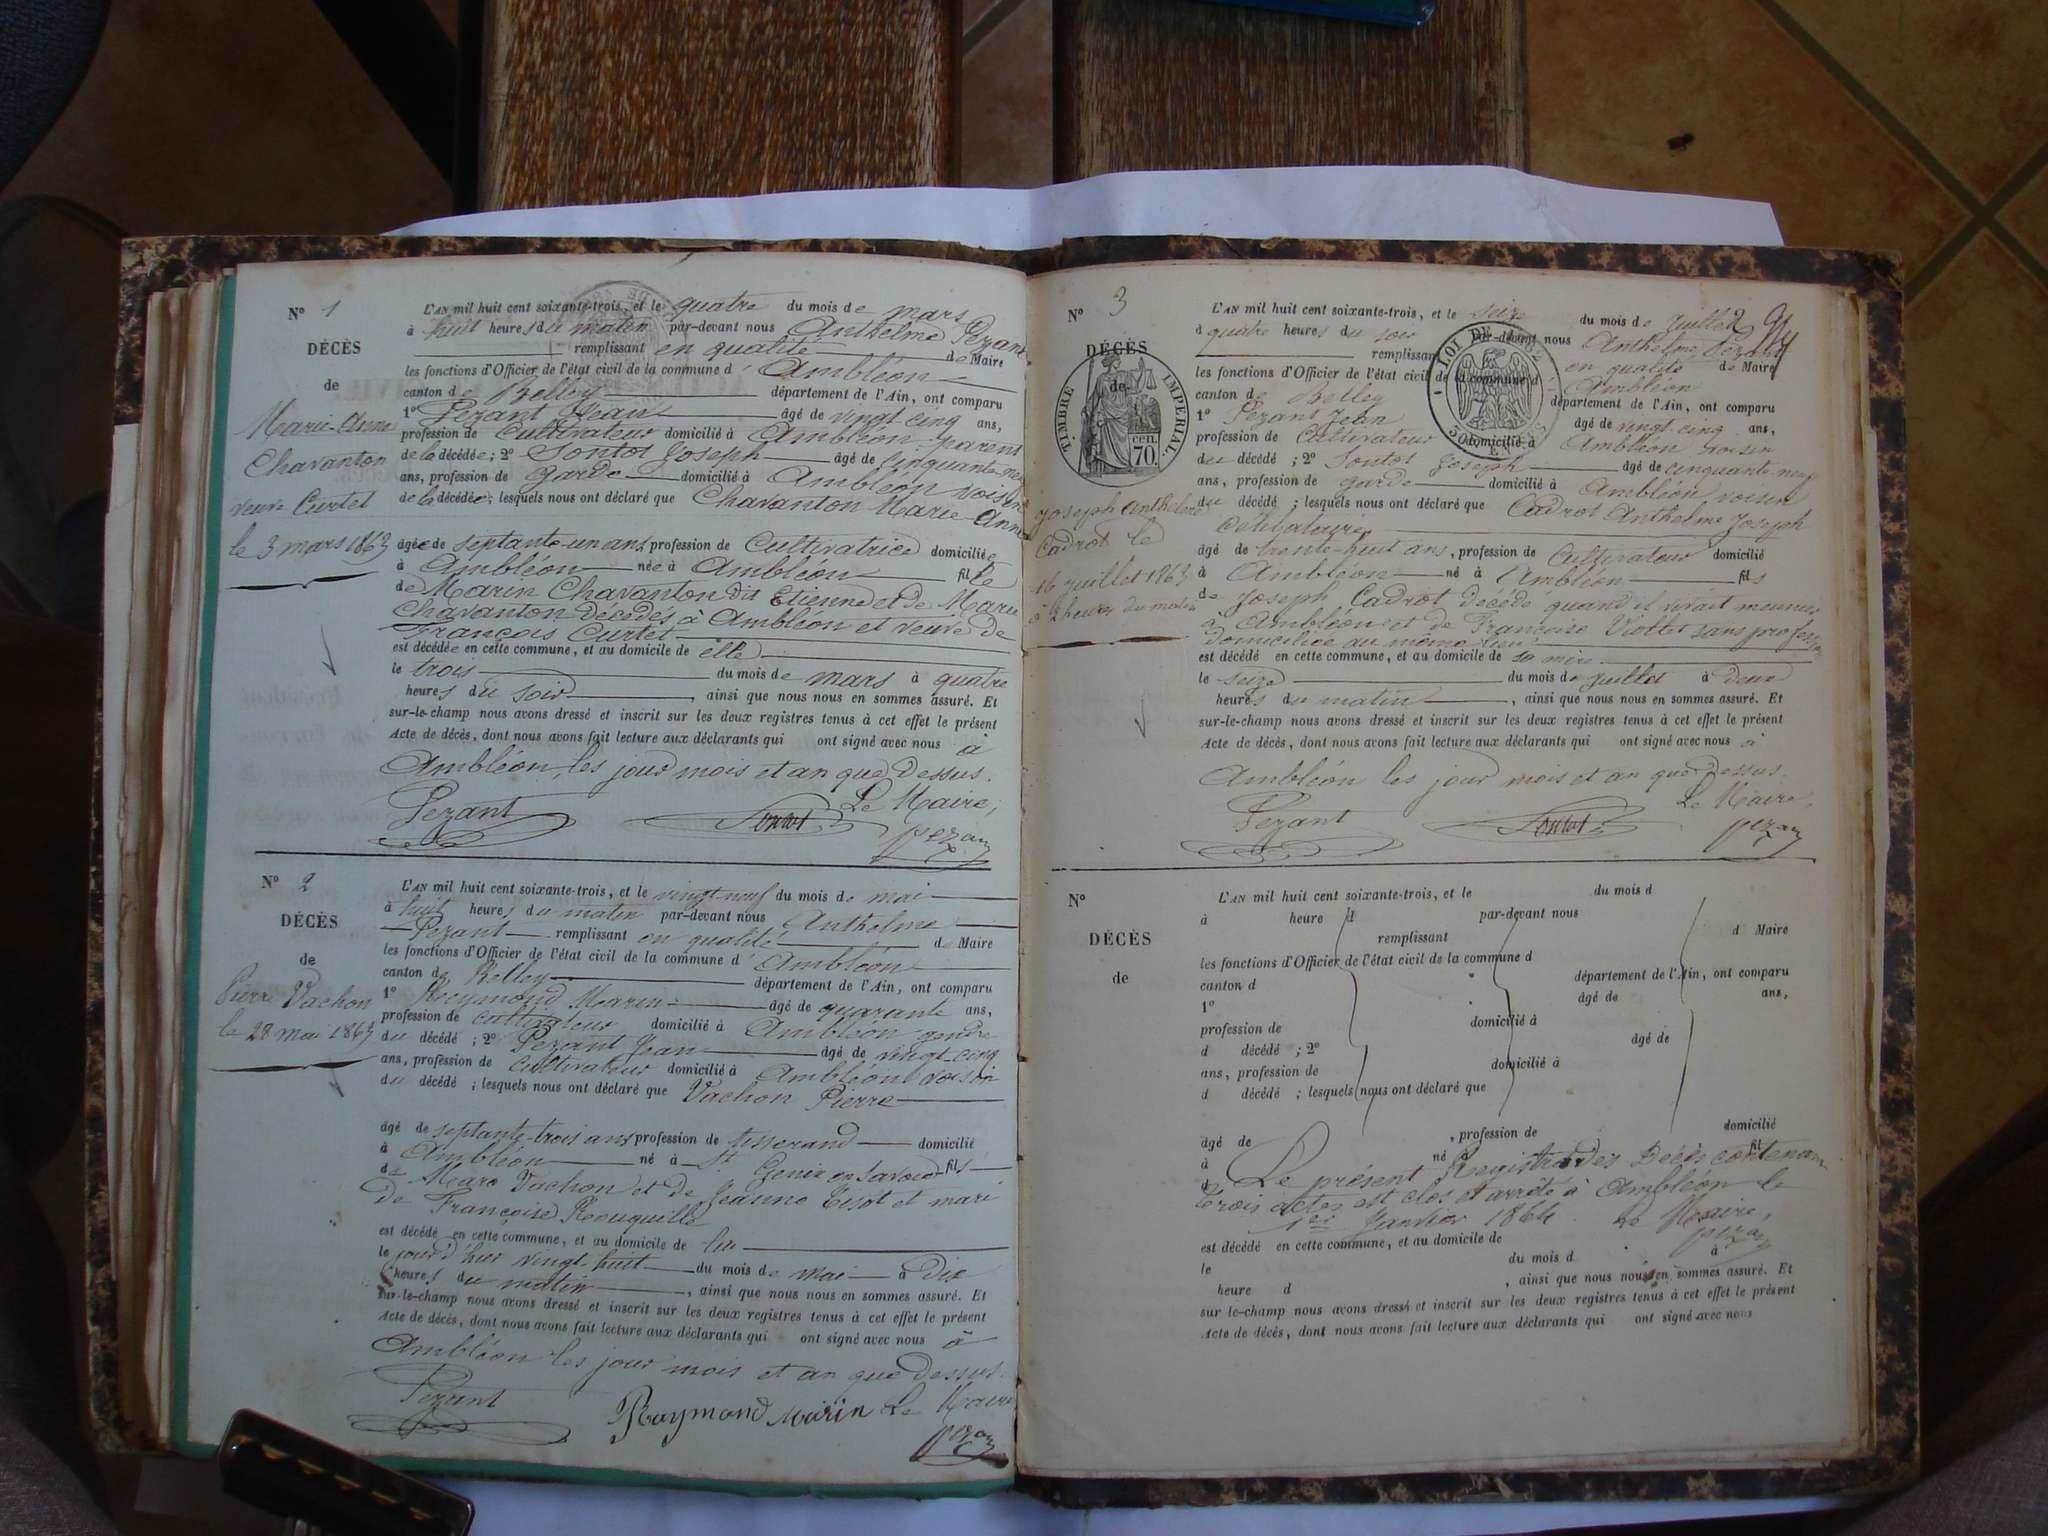 N° 1
DÉCÈS
de
Marie-Anne
Chavanton
veuve Curtet
le 3 mars 1863
L'AN mil huit cent soixante-trois, et le quatre du mois de mars
à huit heures du matin par-devant nous Anthelme Pezant
remplissant en qualité de Maire
les fonctions d'Officier de l'état civil de la commune d'Ambléon
canton de Belley département de l'Ain, ont comparu
1° Pezant Jean âgé de vingt cinq ans,
profession de Cultivateur domicilié à Ambléon parent
de la décédée; 2° Sontot Joseph âgé de cinquante neuf
ans, profession de garde domicilié à Ambléon voisin
de la décédée; lesquels nous ont déclaré que Chavanton Marie-Anne
âgée de septante-un ans profession de Cultivatrice domiciliée
à Ambléon née à Ambléon fille
de Marin Chavanton dit Etienne et de Marie
Chavanton décédés à Ambléon et veuve de
François Curtet
est décédée en cette commune, et au domicile de elle
le trois du mois de mars à quatre
heures du soir, ainsi que nous nous en sommes assuré. Et
sur-le-champ nous avons dressé et inscrit sur les deux registres tenus à cet effet le présent
Acte de décès, dont nous avons fait lecture aux déclarants qui ont signé avec nous à
Ambléon, les jour mois et an que dessus.
Le Maire,
Pezant Sontot Pezan
N° 2
DÉCÈS
de
Pierre Vachon
le 28 mai 1863
L'AN mil huit cent soixante-trois, et le vingt neuf du mois de mai
à huit heures du matin par-devant nous Anthelme
Pezant remplissant en qualité de Maire
les fonctions d'Officier de l'état civil de la commune d'Ambléon
canton de Belley département de l'Ain, ont comparu
1° Reymond Marin âgé de quarante ans,
profession de cultivateur domicilié à Ambléon gendre
du décédé; 2° Pezant Jean âgé de vingt cinq
ans, profession de cultivateur domicilié à Ambléon voisin
du décédé; lesquels nous ont déclaré que Vachon Pierre
âgé de septante-trois ans profession de tisserand domicilié
à Ambléon né à St Genix en Savoie fils
de Marc Vachon et de Jeanne Tisot et mari
de Françoise Rouquille
est décédé en cette commune, et au domicile de lui
le jour d'hier vingt-huit du mois de mai à dix
heures du matin, ainsi que nous nous en sommes assuré. Et
sur-le-champ nous avons dressé et inscrit sur les deux registres tenus à cet effet le présent
Acte de décès, dont nous avons fait lecture aux déclarants qui ont signé avec nous à
Ambléon les jour mois et an que dessus.
Pezant Raymond Marin Le Maire
Pezan
N° 3
DÉCÈS
de
TIMBRE IMPERIAL.
70 cen.
Joseph Anthelme
Cadrot le
16 juillet 1863
à 2 heures du matin
LOI DE 1862
L'AN mil huit cent soixante-trois, et le seize du mois de juillet
à quatre heures du soir par-devant nous Anthelme Pezant
remplissant en qualité de Maire
les fonctions d'Officier de l'état civil de la commune d'Ambléon
canton de Belley département de l'Ain, ont comparu
1° Pezant Jean âgé de vingt cinq ans,
profession de Cultivateur domicilié à Ambléon voisin
du décédé; 2° Sontot Joseph âgé de cinquante-neuf
ans, profession de garde domicilié à Ambléon voisin
du décédé; lesquels nous ont déclaré que Cadrot Anthelme Joseph
célibataire
âgé de trente-huit ans, profession de Cultivateur domicilié
à Ambléon né à Ambléon fils
de Joseph Cadrot décédé quand il vivait meunier
à Ambléon et de Françoise Viollet sans profession
domiciliée au même lieu
est décédé en cette commune, et au domicile de sa mère
le seize du mois de juillet à deux
heures du matin, ainsi que nous nous en sommes assuré. Et
sur-le-champ nous avons dressé et inscrit sur les deux registres tenus à cet effet le présent
Acte de décès, dont nous avons fait lecture aux déclarants qui ont signé avec nous à
Ambléon les jour mois et an que dessus.
Le Maire,
Pezant Sontot Pezan
N°
DÉCÈS
de
L'AN mil huit cent soixante-trois, et le du mois d
à heure d par-devant nous
remplissant d Maire
les fonctions d'Officier de l'état civil de la commune d
canton d département de l'Ain, ont comparu
1° âgé de ans,
profession de domicilié à
d décédé; 2° âgé de
ans, profession de domicilié à
d décédé; lesquels nous ont déclaré que
âgé de , profession de domicilié
à né à fil
d
Le présent Registre des Décès contenant
trois actes est clos et arrêté à Ambléon le
1er Janvier 1864 Le Maire,
Pezan
est décédé en cette commune, et au domicile de
le du mois d à
heure d , ainsi que nous nous en sommes assuré. Et
sur le-champ nous avons dressé et inscrit sur les deux registres tenus à cet effet le présent
Acte de décès, dont nous avons fait lecture aux déclarants qui ont signé avec nous